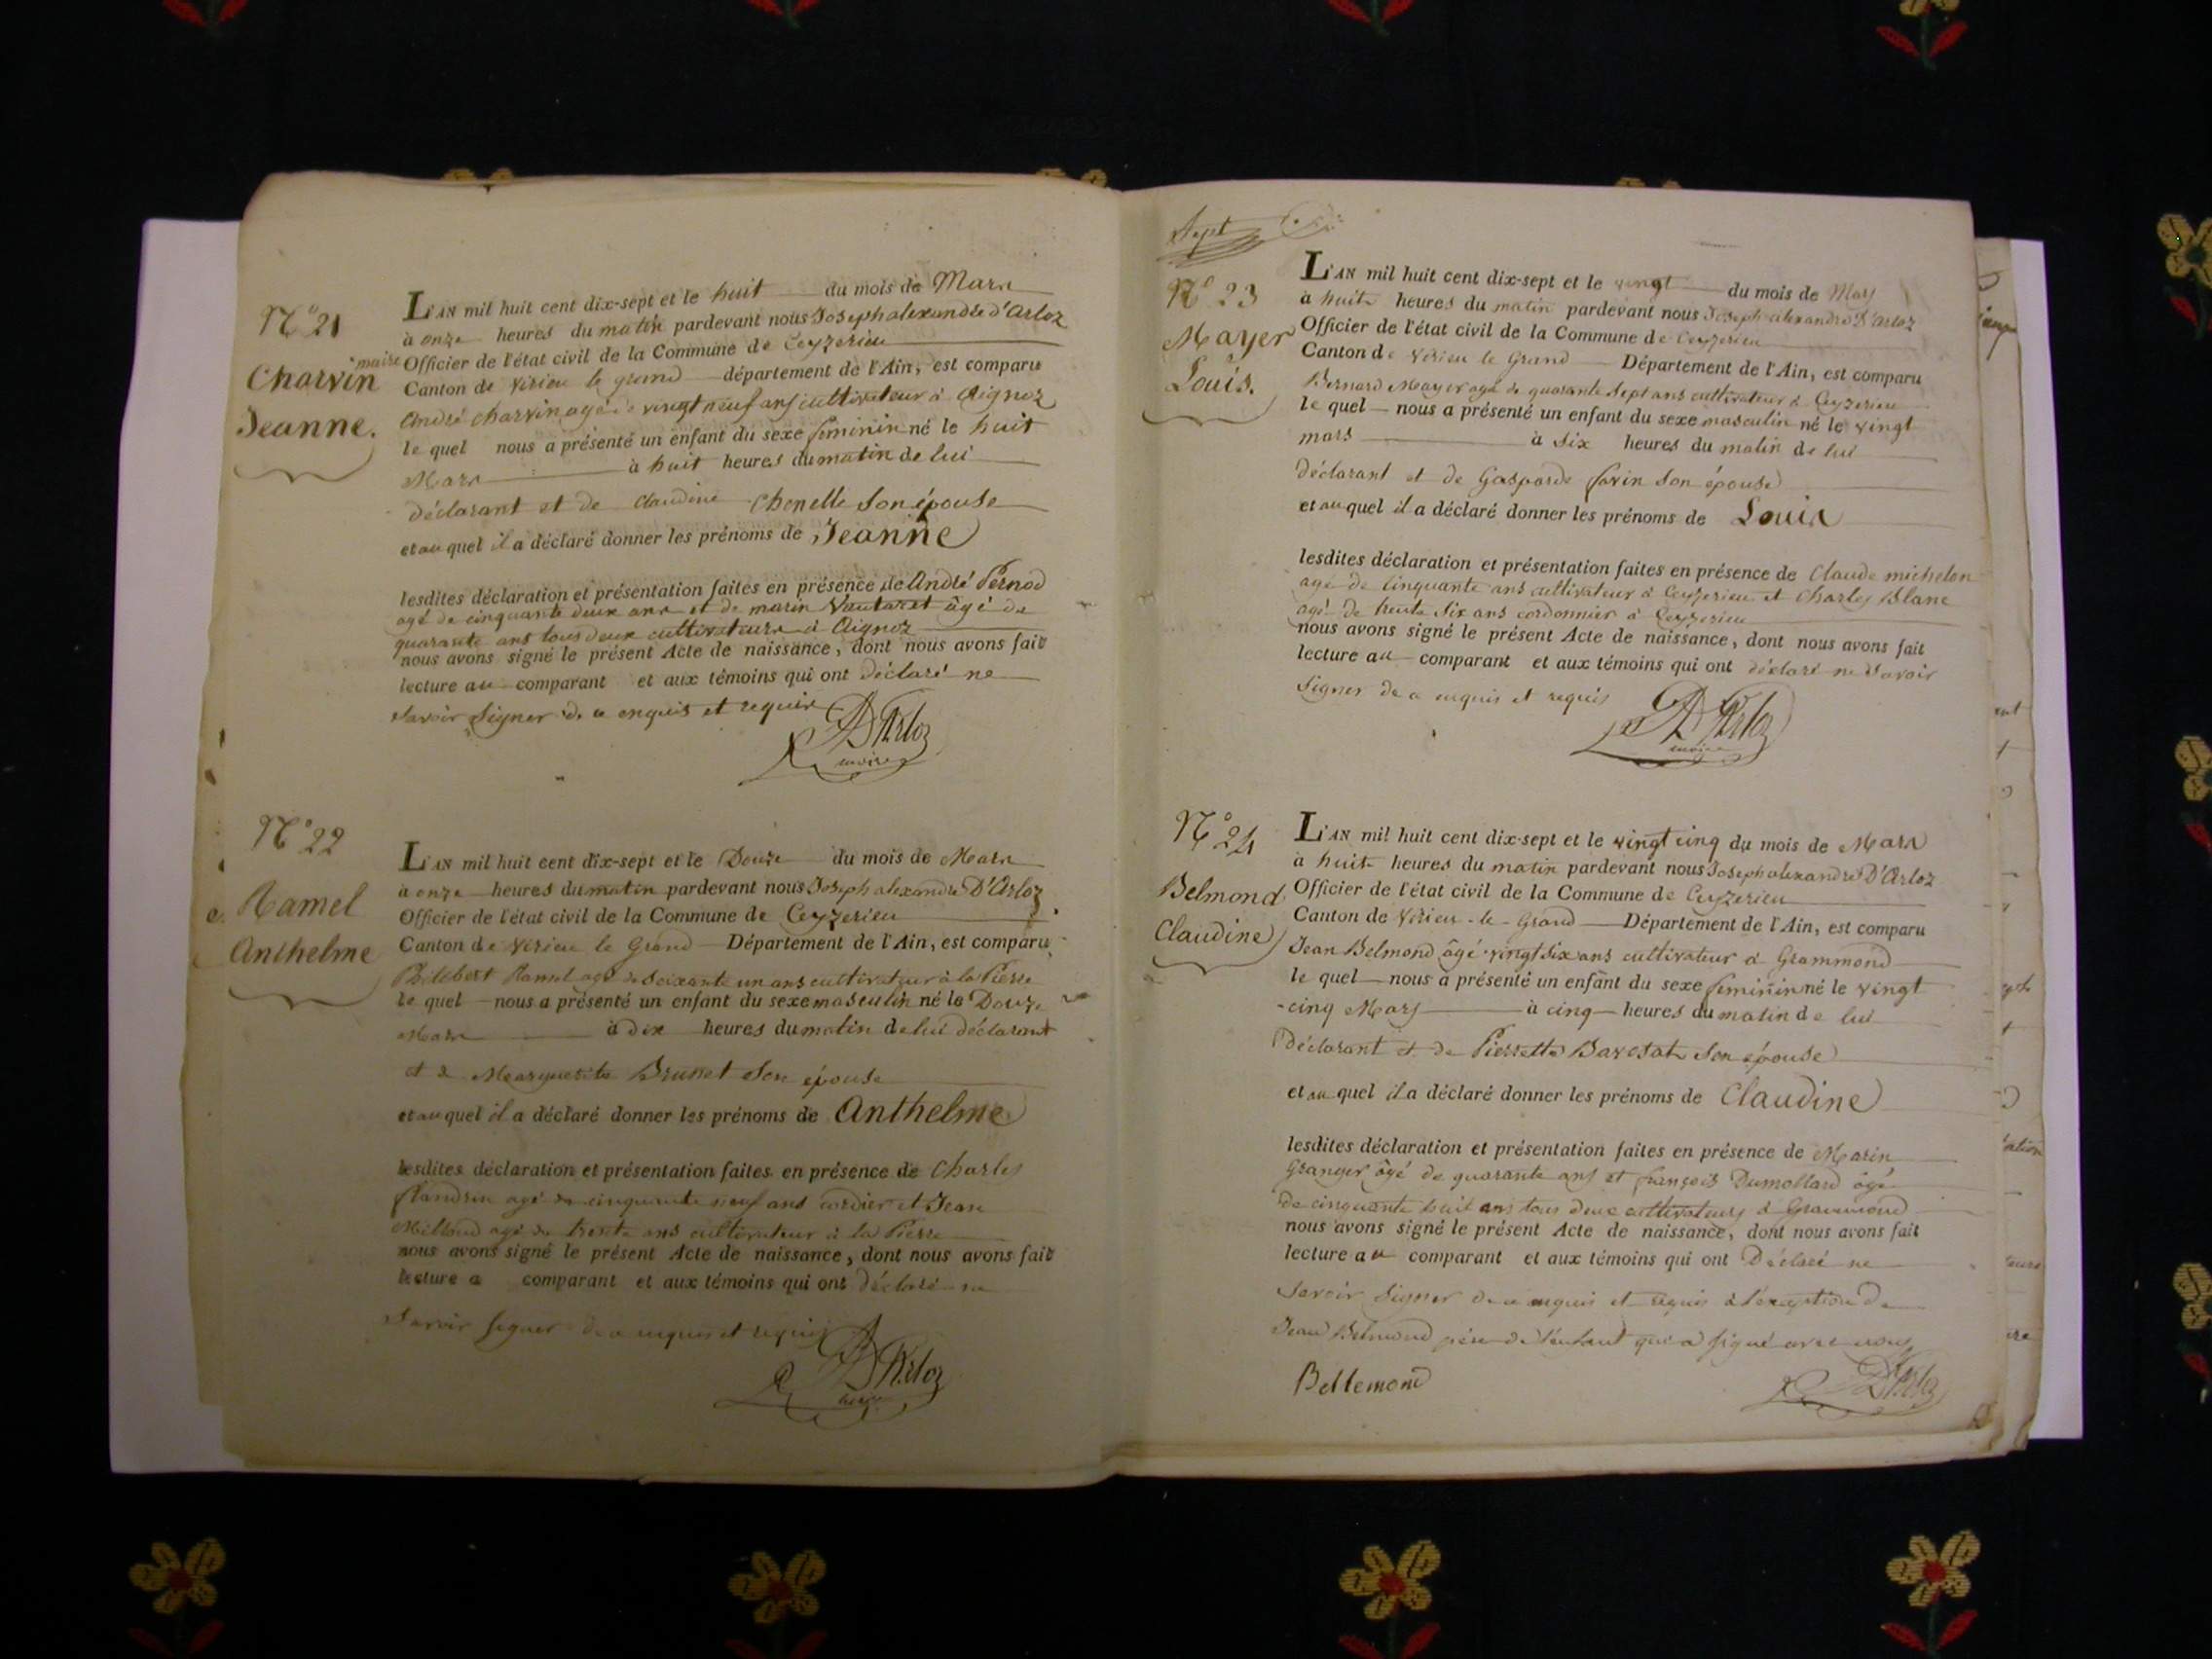 N° 21
Charvin
Jeanne.
L'AN mil huit cent dix-sept et le huit du mois de Mars
à onze heures du matin pardevant nous Joseph alexandre d'arloz
maire Officier de l'état civil de la Commune de Ceyzerieu
Canton de Virieu le grand département de l'Ain, est comparu
André Charvin agé de vingt neuf ans cultivateur à Aignoz
le quel nous a présenté un enfant du sexe feminin né le huit
Mars à huit heures du matin de lui
déclarant et de claudine Chenelle son épouse
et au quel il a déclaré donner les prénoms de Jeanne
lesdites déclaration et présentation faites en présence de André Pernod
agé de cinquante deux ans et de marin Vautaret âgé de
quarante ans tous deux cultivateurs à Aignoz
nous avons signé le présent Acte de naissance, dont nous avons fait
lecture au comparant et aux témoins qui ont déclaré ne
savoir signer de ce enquis et requis
D'Arloz
maire
N° 22
Ramel
Anthelme
L'AN mil huit cent dix-sept et le Douze du mois de Mars
à onze heures du matin pardevant nous Joseph alexandre D'Arloz
Officier de l'état civil de la Commune de Ceyzerieu
Canton de Virieu le Grand Département de l'Ain, est comparu
Philibert Ramel agé de soixante un ans cultivateur à la Pierre
le quel nous a présenté un enfant du sexe masculin né le Douze
Mars à dix heures du matin de lui déclarant
et de Marguerite Brunet son épouse
et au quel il a déclaré donner les prénoms de Anthelme
lesdites déclaration et présentation faites en présence de Charles
flandrin agé de cinquante neuf ans cordier et Jean
Milloud agé de trente ans cultivateur à la Pierre
nous avons signé le présent Acte de naissance, dont nous avons fait
lecture a comparant et aux témoins qui ont déclaré ne
savoir signer de ce enquis et requis
D'Arloz
maire
Sept
N° 23
Mayer
Louis.
L'AN mil huit cent dix-sept et le vingt du mois de Mars
à huit heures du matin pardevant nous Joseph alexandre D'arloz
Officier de l'état civil de la Commune de Ceyzerieu
Canton de Virieu le Grand Département de l'Ain, est comparu
Bernard Mayer agé de quarante sept ans cultivateur à Ceyzerieu
le quel nous a présenté un enfant du sexe masculin né le vingt
mars à six heures du matin de lui
déclarant et de Gasparde Savin son épouse
et au quel il a déclaré donner les prénoms de Louis
lesdites déclaration et présentation faites en présence de Claude michelon
agé de cinquante ans cultivateur à Ceyzerieu et Charles Blanc
agé de trente six ans cordonnier à Ceyzerieu
nous avons signé le présent Acte de naissance, dont nous avons fait
lecture au comparant et aux témoins qui ont déclaré ne savoir
signer de ce enquis et requis
D'Arloz
maire
N° 24
Belmond
Claudine
L'AN mil huit cent dix-sept et le vingt cinq du mois de Mars
à huit heures du matin pardevant nous Joseph alexandre D'Arloz
Officier de l'état civil de la Commune de Ceyzerieu
Canton de Virieu-le-Grand Département de l'Ain, est comparu
Jean Belmond âgé vingt six ans cultivateur à Grammond
le quel nous a présenté un enfant du sexe feminin né le vingt
-cinq Mars à cinq heures du matin de lui
Déclarant et de Pierrette Bavosat son épouse
et au quel il a déclaré donner les prénoms de Claudine
lesdites déclaration et présentation faites en présence de Marin
Granger âgé de quarante ans et françois Dumollard âgé
de cinquante huit ans tous deux cultivateurs à Grammond
nous avons signé le présent Acte de naissance, dont nous avons fait
lecture au comparant et aux témoins qui ont Déclaré ne
savoir signer de ce enquis et requis à l'exception de
Jean Belmond père de l'enfant qui a signé avec nous
Bellemond
D'Arloz